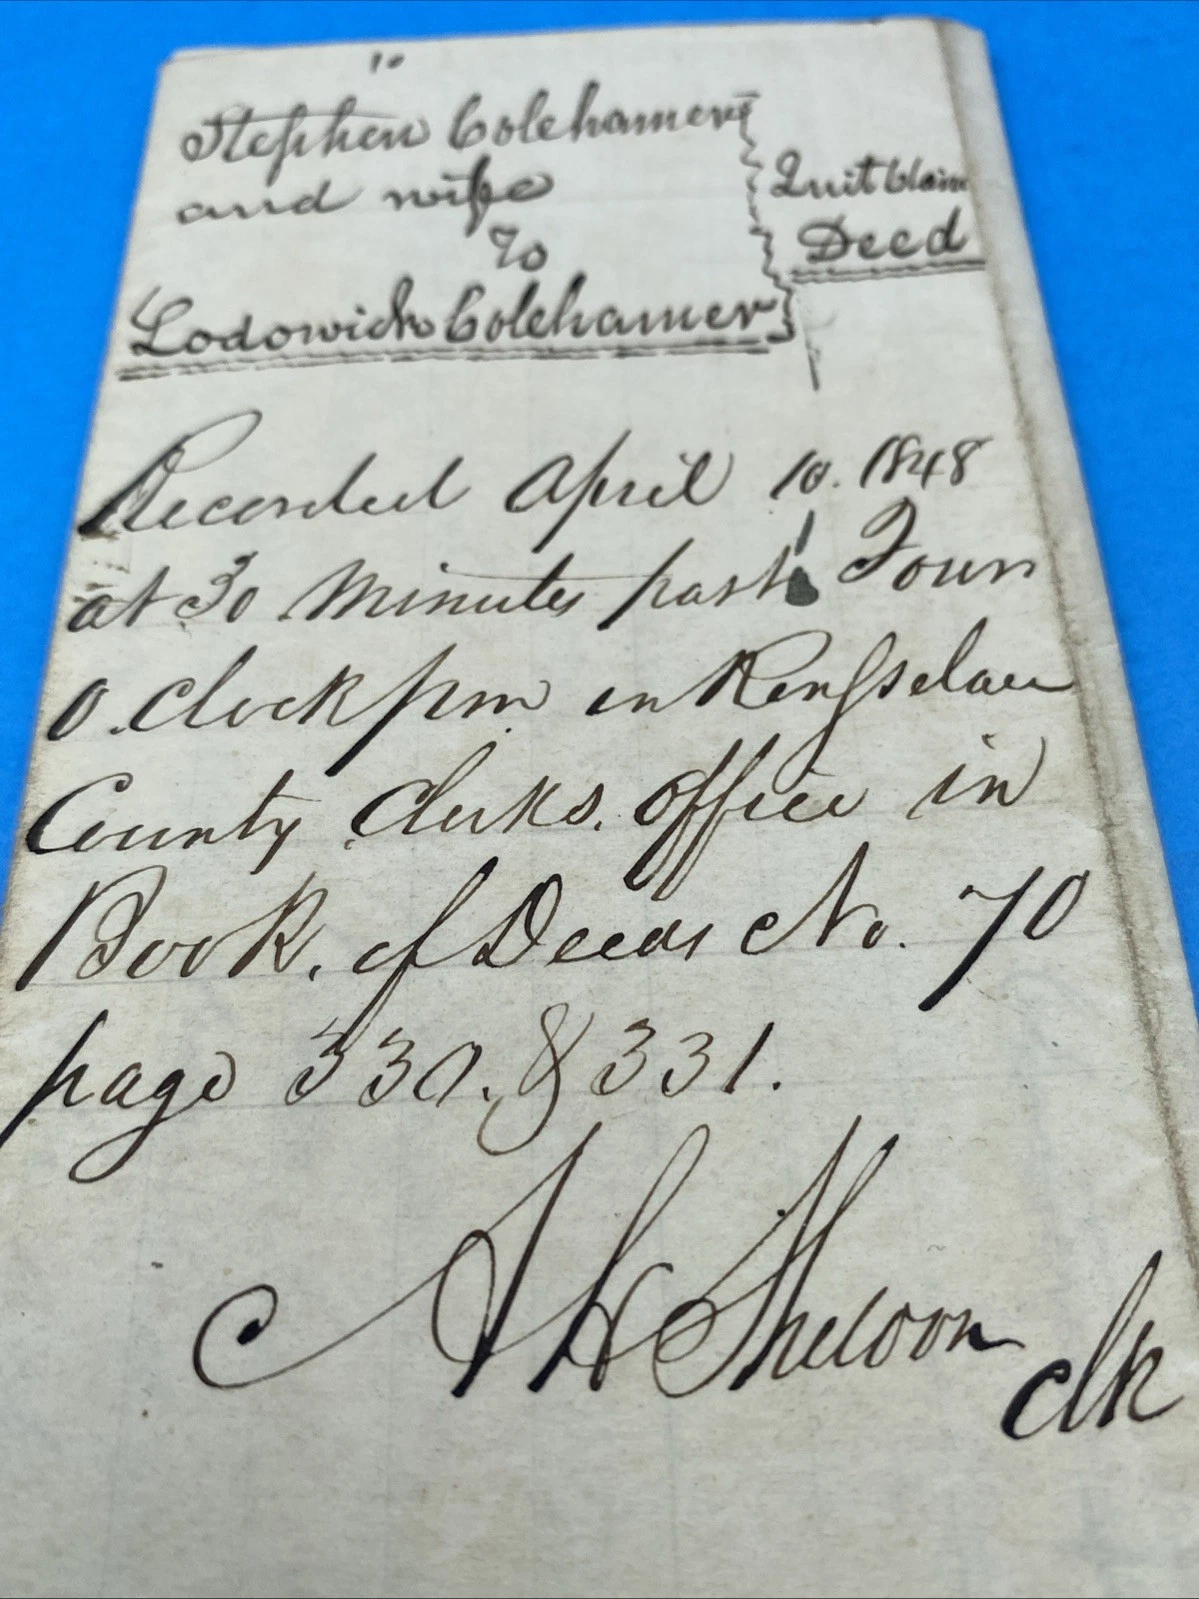 10
Stephen Colehamer
and wife
To
Lodowick Colehamer
Quit Claim
Deed
Recorded April 10. 1848
at 30 Minutes past Four
O.Clock pm in Rensselaer
County Clerks. Office in
Book. of Deeds No. 70
page 330. & 331.
Sheldon Clk